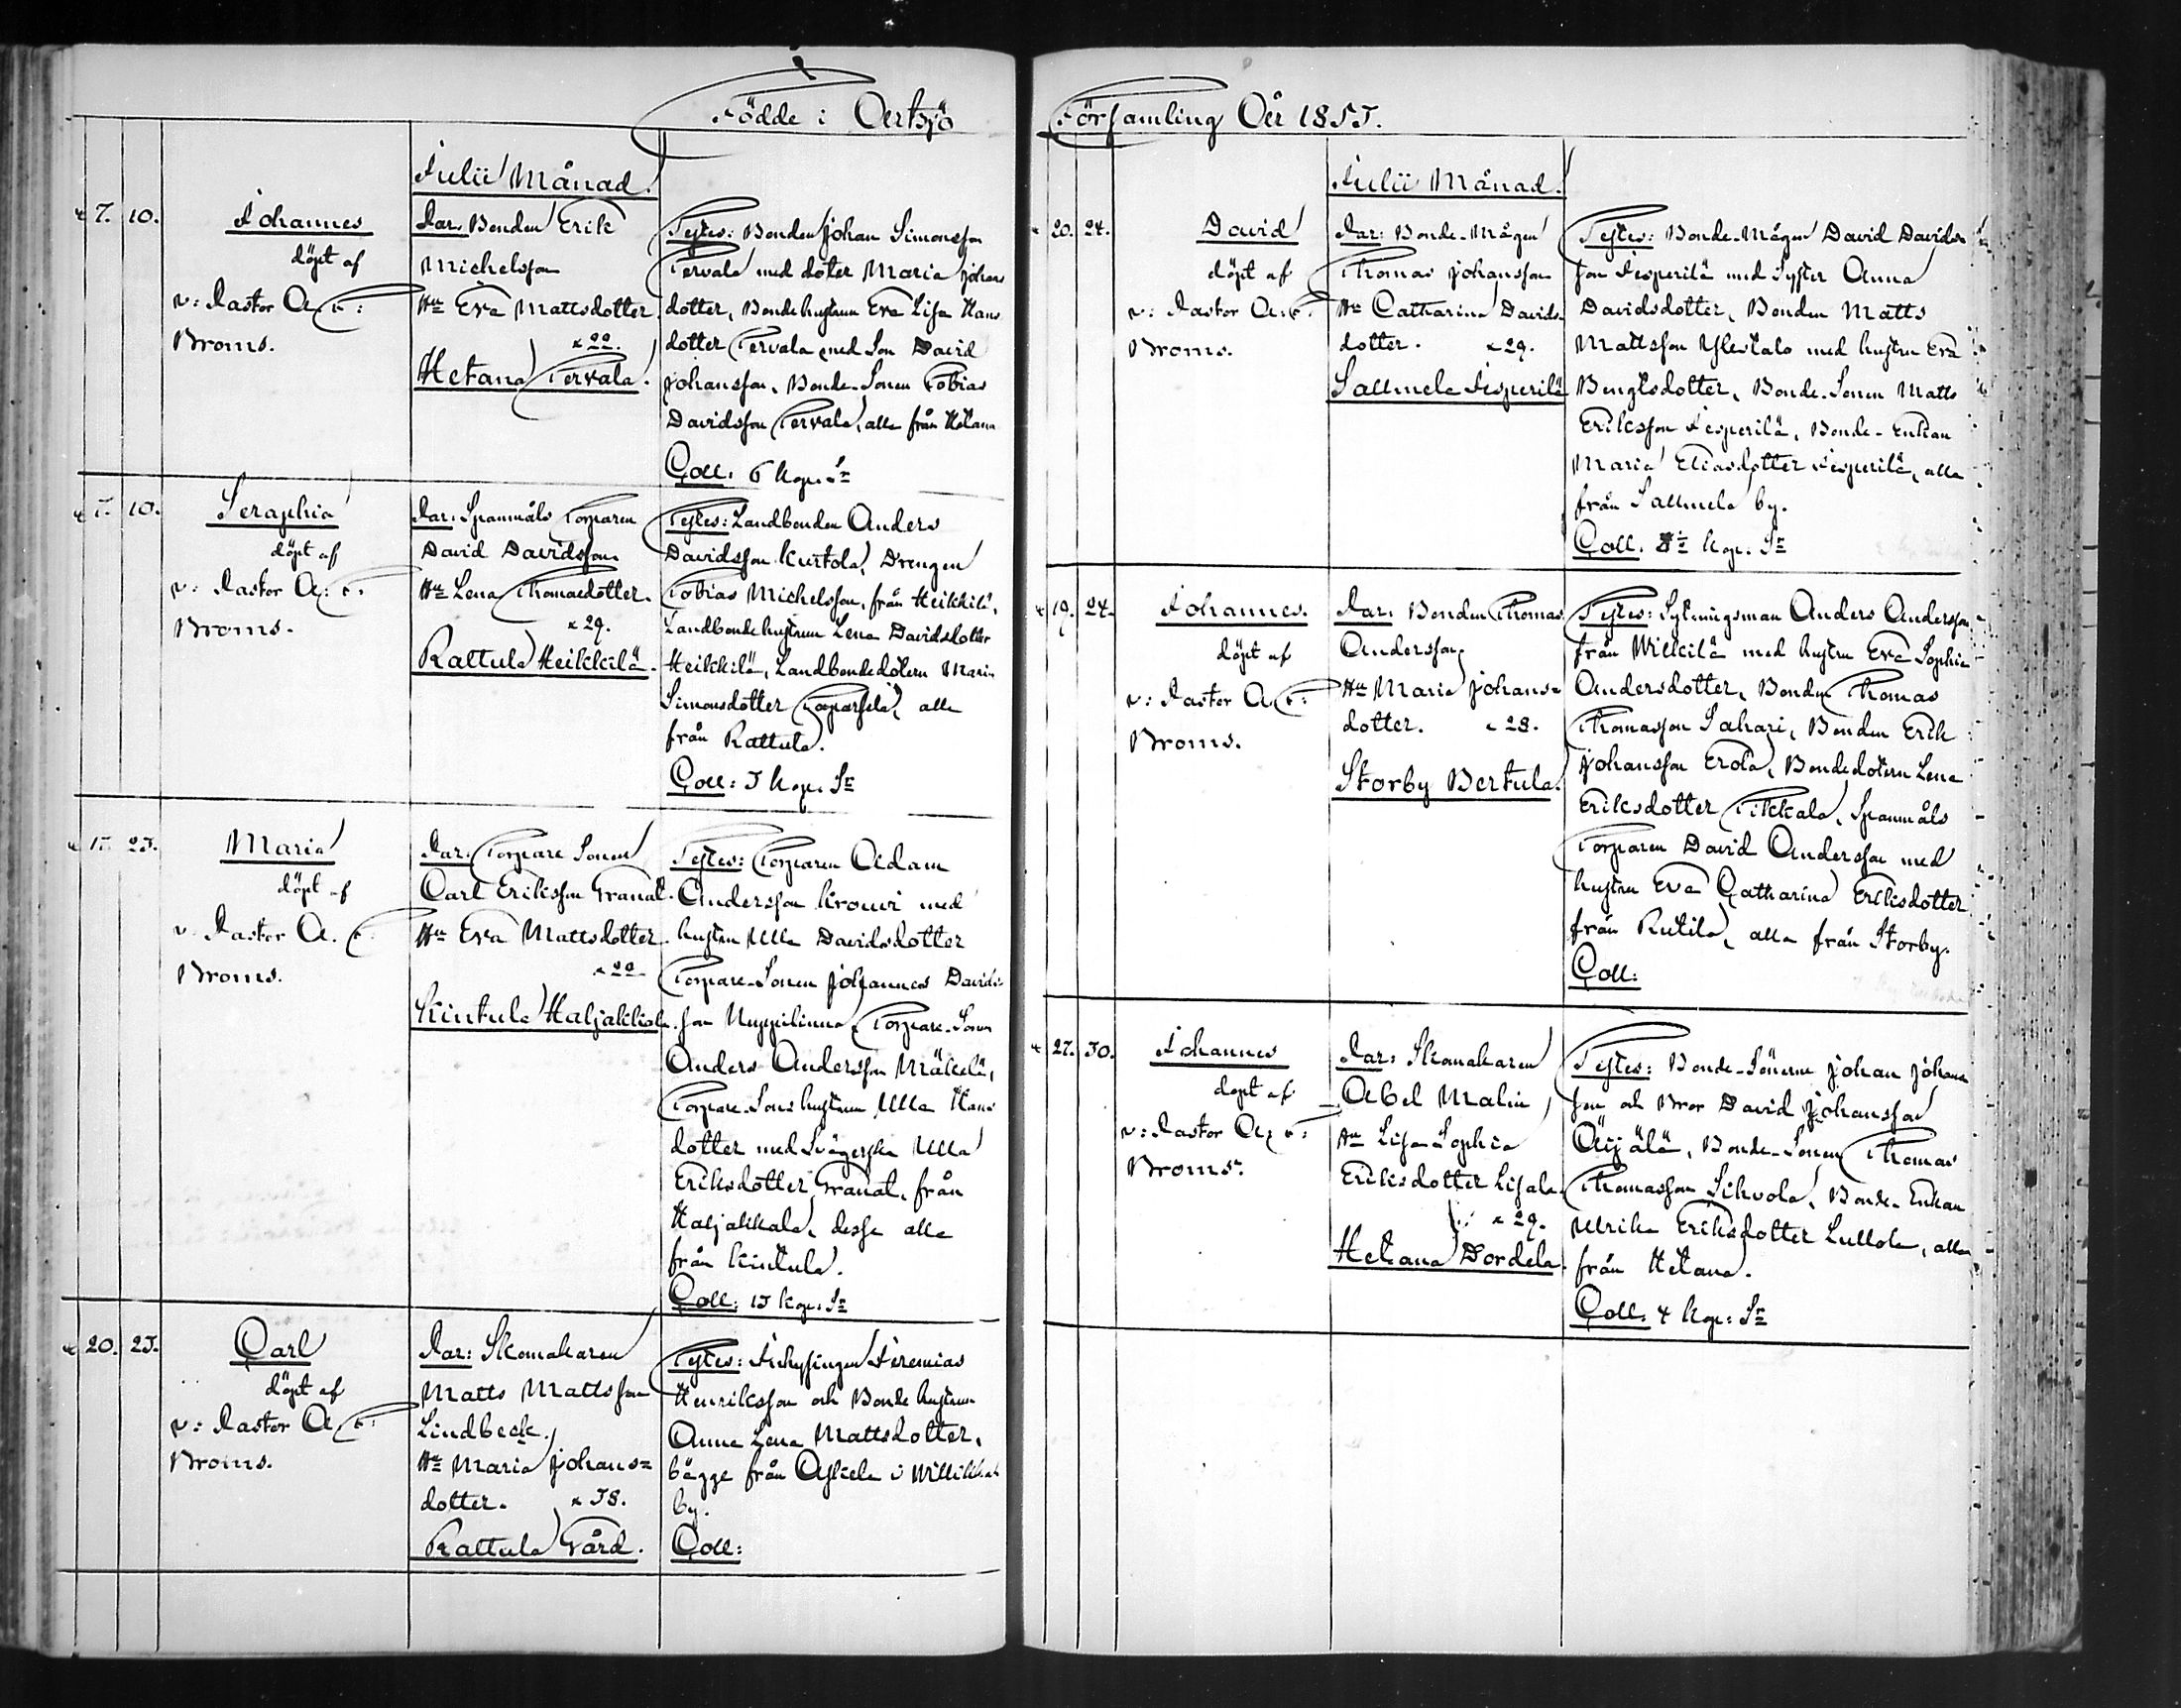 Födde i Artsjö
Julii Månad.
7. 10.
Johannes
döpt af
v: Pastor A. F:
Broms.
Par. Bonden Erik
Michelsson
Hu Eva Mattsdotter
x 22.
Hetana Tervala.
Testes: Bonden Johan Simonsson
Tervala med doter Maria Johans
dotter, Bondehustrun Eva Lisa Hans
dotter Tervala med Son David
Johansson, Bonde-Sonen Tobias
Davidsson Tervala, alla från Hetana
Coll. 6 kop. Sr
7. 10.
Seraphia
döpt af
v: Pastor A: F:
Broms.
Par. Spanmåls Torparen
David Davidsson
Hu Lena Thomaedotter.
x 29.
Rattula Heikkilä.
Testes: Landbonden Anders
Davidsson Kurtola, Drengen
Tobias Michelsson, från Heikkilä,
Landbondehustrun Lena Davidsdotter
Heikkilä, Landbondedotern Maria
Simonsdotter alla
från Rattula.
Coll: 5 kop. Sr
17. 25.
Maria
döpt af
v. Pastor A. F.
Broms.
Par. Torpare Sonen
Carl Eriksson Granat.
Hu Eva Mattsdotter.
x 22
Kintula Haljakkala.
Testes: Torparen Adam
Andersson Krouvi med
hustru Ulla Davidsdotter
Torpare-Sonen Johannes Davids-
son Uuppilinna, Torpare-Sonen
Anders Andersson Mäkelä,
Torpare-Sons hustrun Ulla Hans
dotter med Svägerska Ulla
Eriksdotter Granat, från
Haljakkala, desse alla
från Kintula.
Coll: 15 kop. Sr
20. 25.
Carl
döpt af
v: Pastor A. F:
Broms.
Par: Skomakaren
Matts Mattsson
Lindbeck.
Hu Maria Johans=
dotter. x 38.
Rattula Gård.
Testes: Jeremias
Henriksson och Bonde hustrun
Anna Lena Mattsdotter,
bägge från i Willikkala
by.
Coll:
Församling År 1855.
Julii Månad.
20. 24.
David
döpt af
v: Pastor A. F.
Broms.
Par: Bonde-Mågen
Thomas Johansson
Hu Catharina Davids-
dotter. x 29.
Sallmela Jesperilä
Testes: Bonde-Mågen David Davids
son Jesperilä med Syster Anna
Davidsdotter, Bonden Matts
Mattsson Ylestalo med hustru Eva
Bengtsdotter, Bonde-Sonen Matts
Eriksson Jesperilä, Bonde-Enkan
Maria Eliasdotter Jesperilä, alla
från Sallmela by.
Coll. kop. Sr
19. 24.
Johannes.
döpt af
v: Pastor A. F:
Broms.
Par. Bonden Thomas
Andersson
Hu Maria Johans=
dotter. x 28.
Storby Bertula.
Testes: Sytningsman Anders Andersson
från Wilkilä med hustru Eva Sophia
Andersdotter, Bonden Thomas
Thomasson Sahari, Bonden Erik
Johansson Erola, Bondedotern Lena
Eriksdotter Pikkala, Spanmåls
Torparen David Andersson med
hustru Eva Catharina Eriksdotter
från Rutila, alla från Storby.
Coll:
27. 30.
Johannes
döpt af
v: Pastor A: F:
Broms.
Par: Skomakaren
Abel Malin
Hu Lisa Sophia
Eriksdotter Lisala.
x 29.
Hetana Dordela.
Testes: Bonde-Sönerne Johan Johans
son och Bror David Johansson
Äijälä, Bonde-Sonen Thomas
Thomasson Sihvola, Bonde-Enkan
Ulrika Eriksdotter Lullola, alla
från Hetana.
Coll. 4 kop: Sr